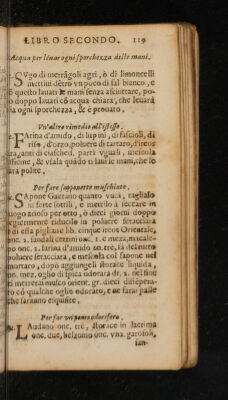 LIBRO SECONDO. 119
Acqua per leuar ogni sporchezza delle mani.
SVgo di merãgoli agri, ò di limoncelli
mettiui dẽtro vn poco di sal bianco, e
cõ questo lauati le mani senza asciuttare, po-
o doppo lauati cõ acqua chiara, che leuarà
ogni sporchezza, & è prouato.
Vn'altro rimedio all'istesso.
FArina d'amido, di lupini, di fascioli, di
riso, d'orzo, poluere di tartaro, d'ireos
ana, parti vguali, mescola
insieme, & vsala quãdo ti laui le mani, che le
farà polite.
Per fare saponetto muschiato.
SApone Gaetano quanto vuoi, taglialo
in fette sottili, e mettilo à seccare in
luogo arioso per otto, ò dieci giorni doppo
leggiermente riducilo in poluere setacciata
e di essa pigliane lib. cinque ireos Orientale,
onc. 2. sandali cetrini onc. 1. e meza, macaleb
onc. 1. farina d'amido on. tre, fà del tutto
poluere setacciata, e mescola col sapone nel
mortaro, dopò aggiungeli storace liquida,
on. mez. oglio di spica odorara dr. 2. nel fine
ti metterai musco orient. gr. dieci distempera-
to cõ qualche oglio odorato, e ne farai palle
che saranno esquisite.
Per far vn pomo odorifero.
LAudano onc. tre, storace in lacrima
onc. due, belzoino onc. vna, garofoli,